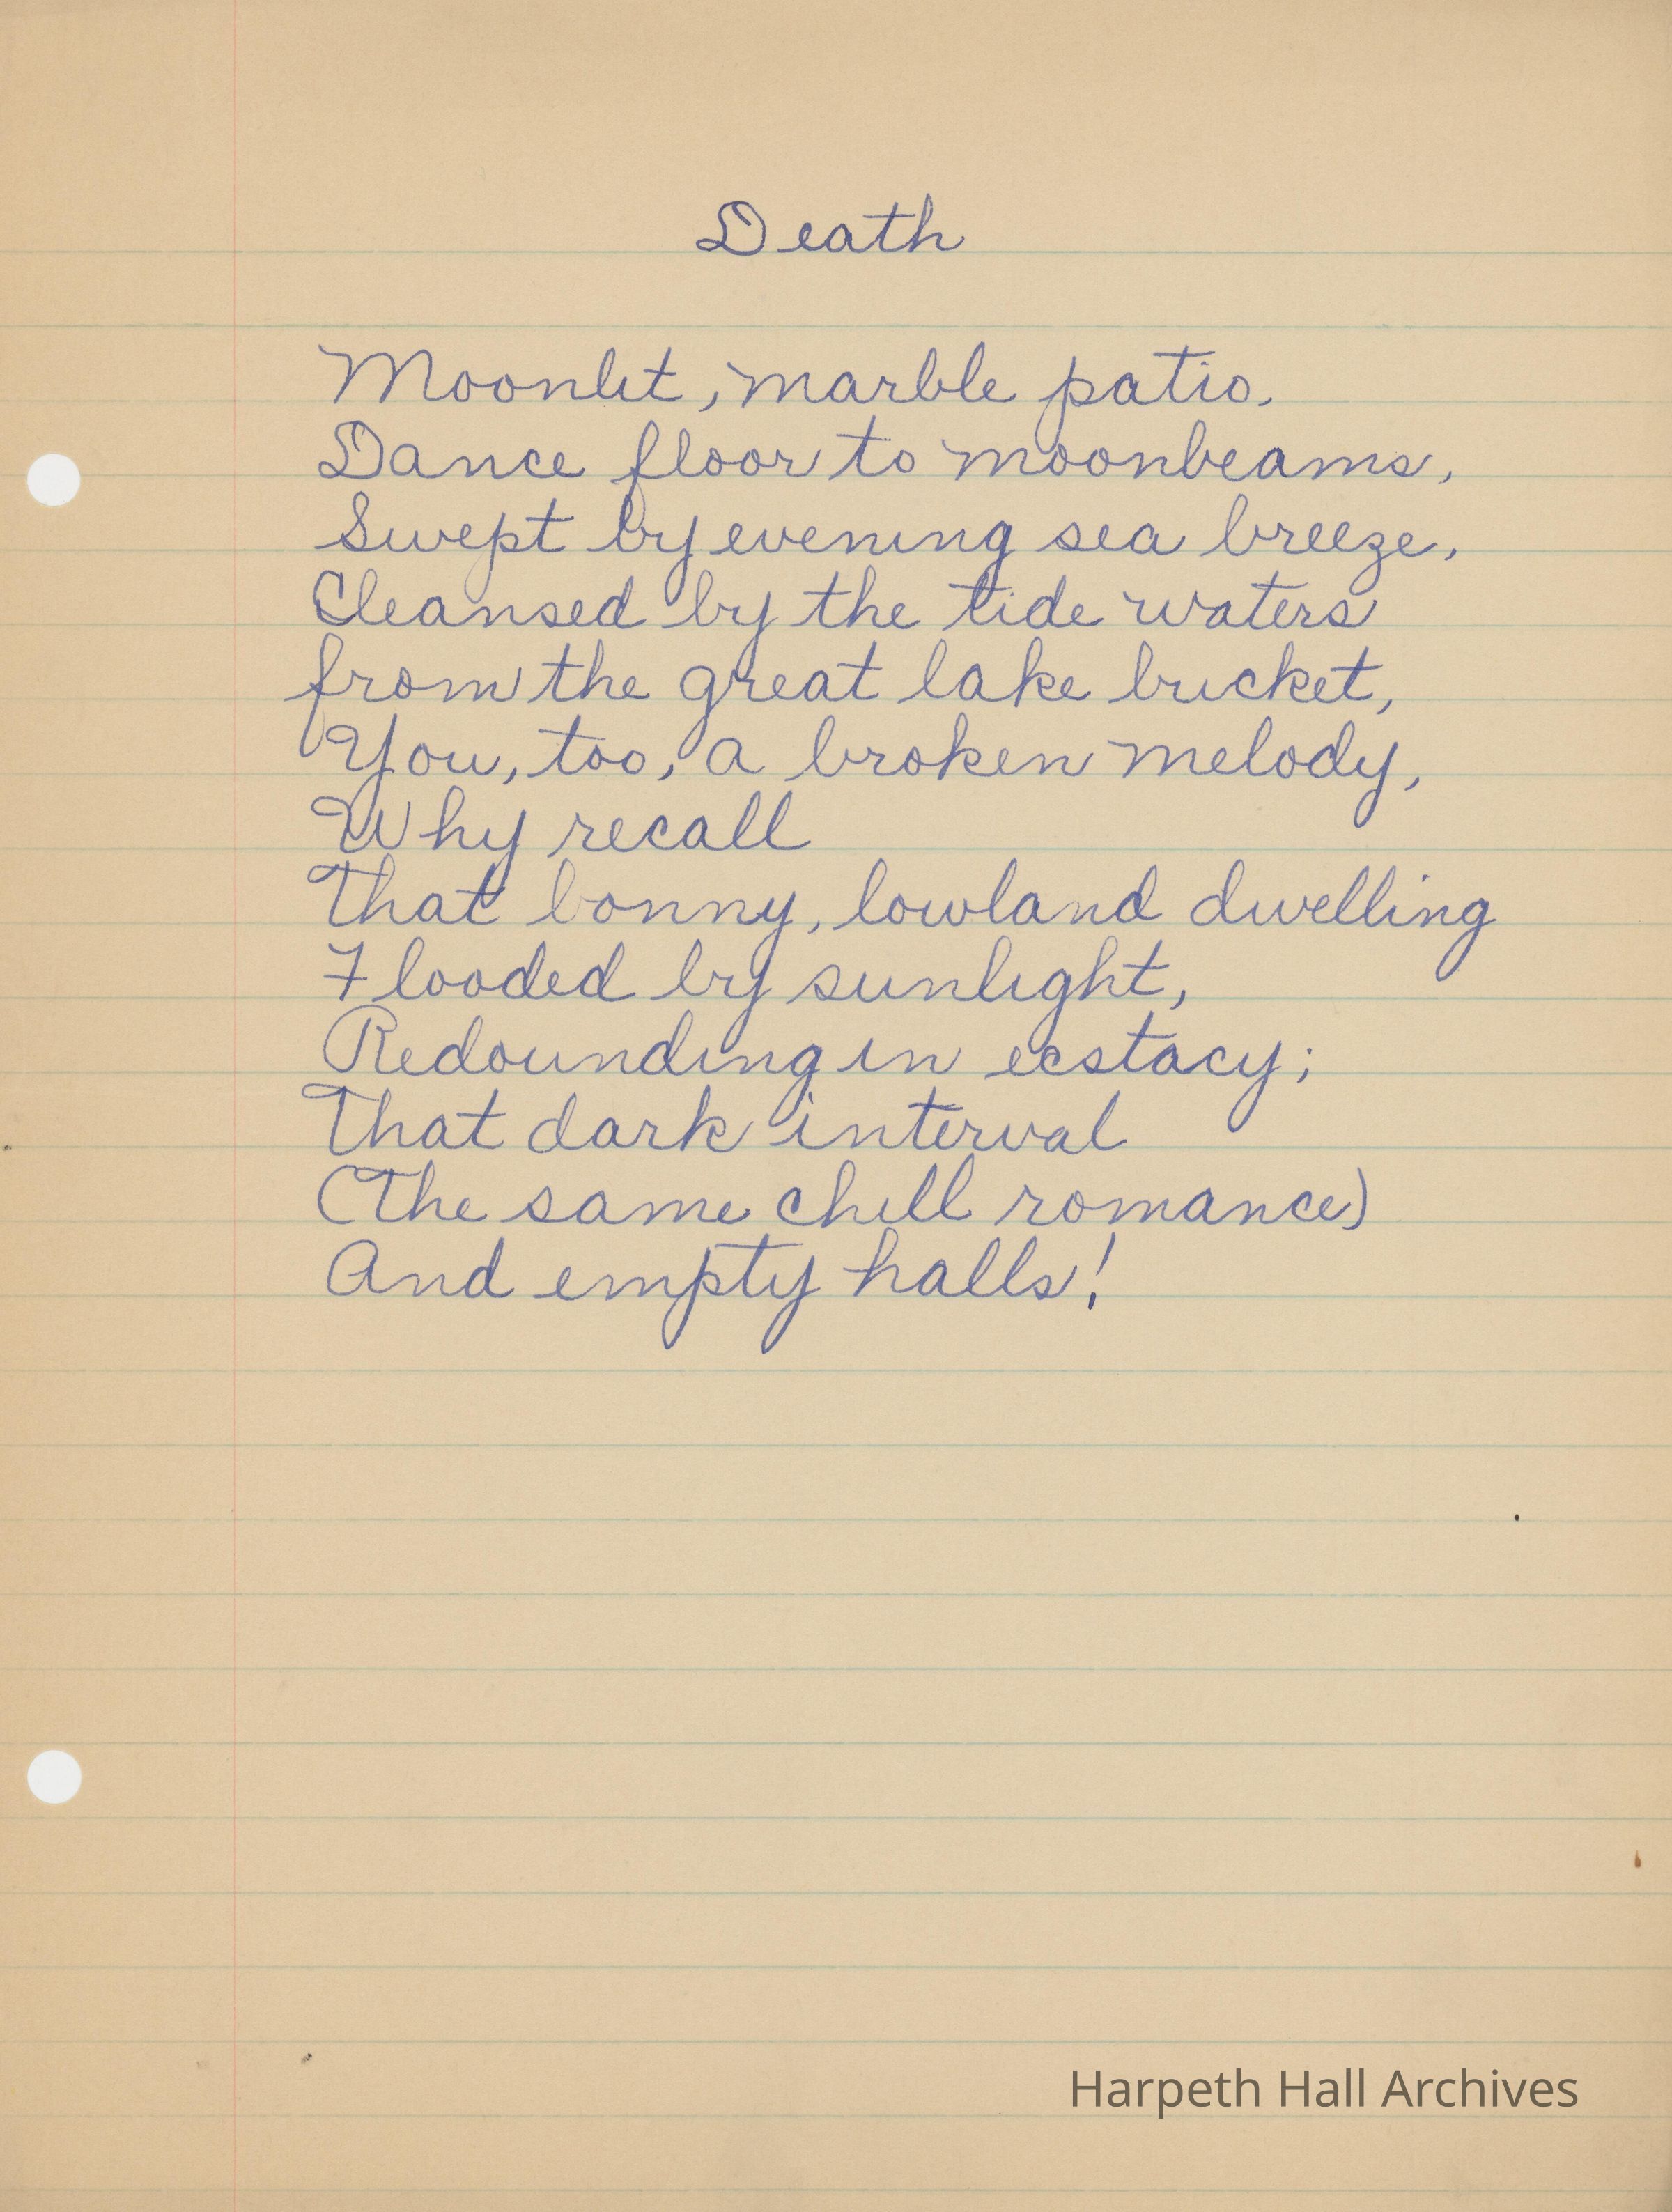 Death
Moonlit, marble patio,
Dance floor to moonbeams,
Swept by evening sea breeze,
Cleansed by the tide waters
from the great lake bucket,
You, too, a broken melody,
Why recall
That bonny, lowland dwelling
Flooded by sunlight,
Redounding in ecstacy;
That dark interval
(The same chill romance)
And empty halls!
Harpeth Hall Archives